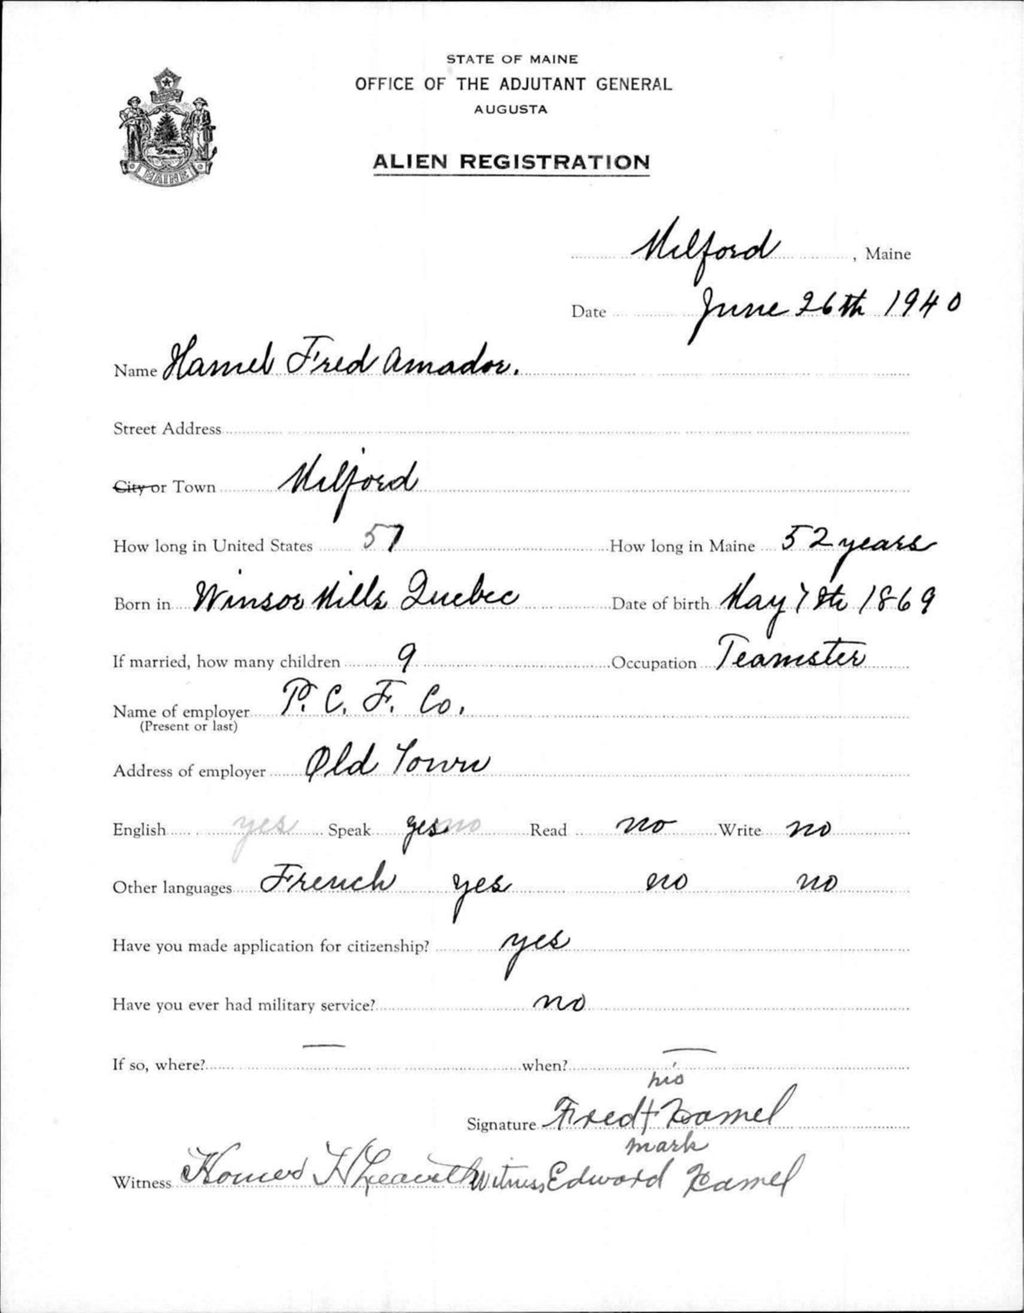 STATE OF MAINE
OFFICE OF THE ADJUTANT GENERAL
AUGUSTA
ALIEN REGISTRATION
MAINE
Milford, Maine
Date June 26th 1940
Name Hamel Fred Amador.
Street Address
City or Town Milford
How long in United States 57 How long in Maine 52 years
Born in Winsor Mills Quebec Date of birth May 18th 1869
If married, how many children 9 Occupation Teamster
Name of employer P. C. F. Co.
(Present or last)
Address of employer Old Town
English yes Speak yes no Read no Write no
Other languages French yes no no
Have you made application for citizenship? yes
Have you ever had military service? no
If so, where? — when? —
his
Signature Fred + Hamel
mark
Witness Homer H Witness Edward Hamel